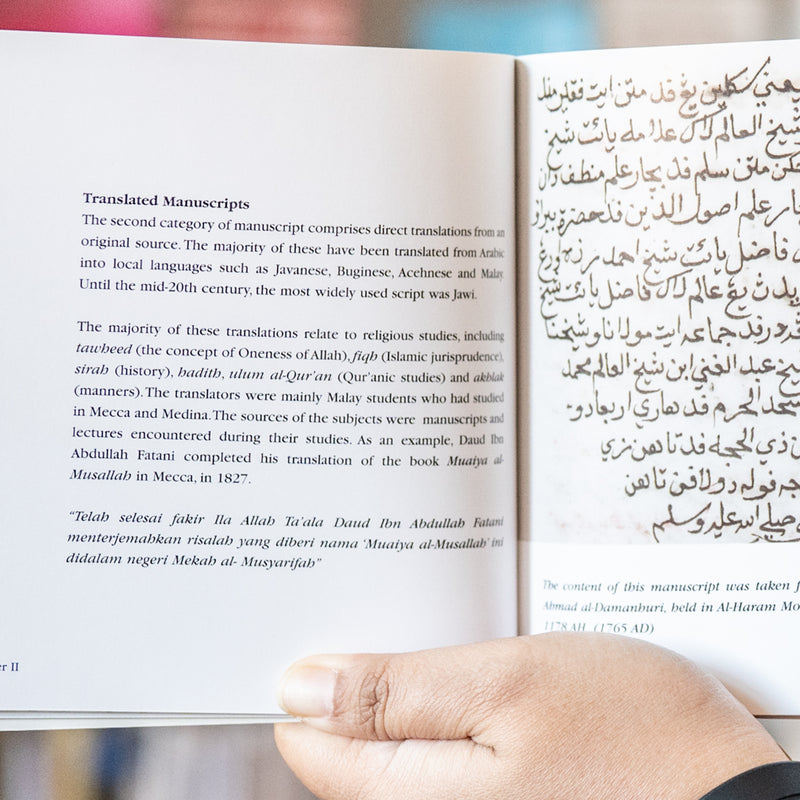 Translated Manuscripts
The second category of manuscript comprises direct translations from an
original source. The majority of these have been translated from Arabic
into local languages such as Javanese, Buginese, Acehnese and Malay.
Until the mid-20th century, the most widely used script was Jawi.
The majority of these translations relate to religious studies, including
tawheed (the concept of Oneness of Allah), fiqh (Islamic jurisprudence),
sirah (history), hadith, ulum al-Qur'an (Qur'anic studies) and akhlak
(manners). The translators were mainly Malay students who had studied
in Mecca and Medina. The sources of the subjects were manuscripts and
lectures encountered during their studies. As an example, Daud Ibn
Abdullah Fatani completed his translation of the book Muaiya al-
Musallah in Mecca, in 1827.
"Telah selesai fakir Ila Allah Ta'ala Daud Ibn Abdullah Fatani
menterjemahkan risalah yang diberi nama 'Muaiya al-Musallah' ini
didalam negeri Mekah al- Musyarifah"
er II
سكلين يڠ قد متن ايت
شيخ العالم لاݢ علامه يائت شيخ
متن سلم قد بچار علم منطق دان
علم اصول الدين قد حضرة
فاضل يائت شيخ احمد
يڠ عالم لاݢ فاضل يائت شيخ
قد جماعه ايت مولانا وشيخنا
شيخ عبد الغني ابن شيخ العالم محمد
الحرم قد هاري اربعا دو
ذي الحجه قد تاهن
تاهن
صلي الله عليه وسلم
The content of this manuscript was taken f
Ahmad al-Damanhuri, held in Al-Haram Mo
1178 AH. (1765 AD)